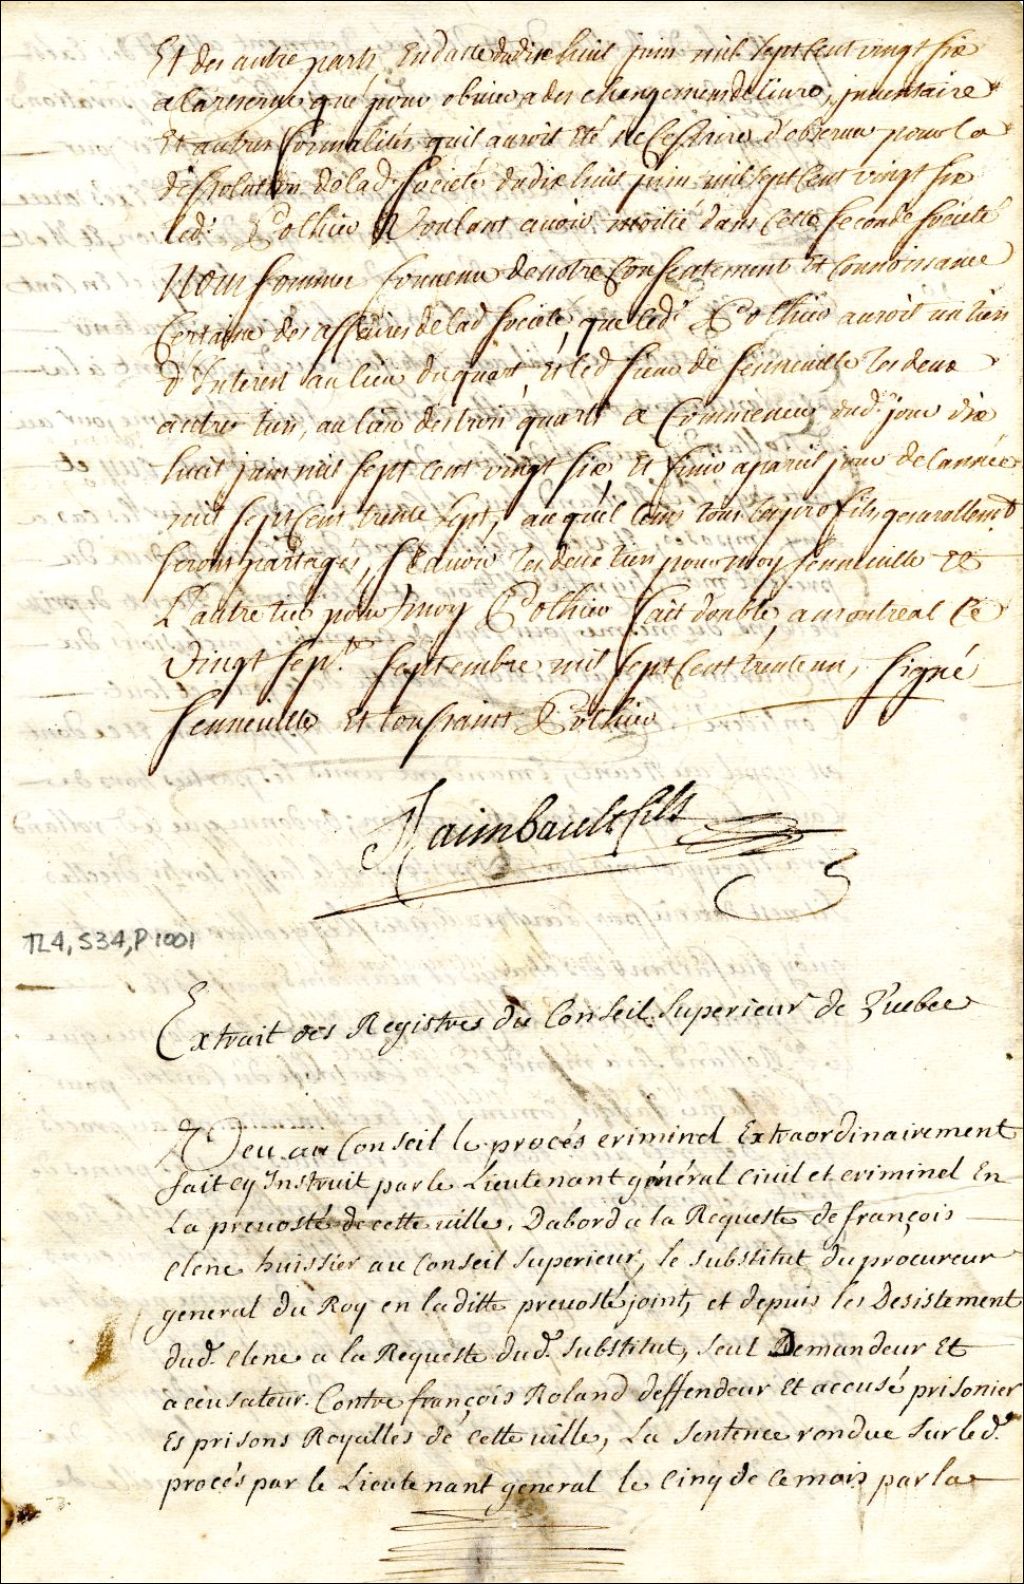 Et des autre parts, En datte dudix huit juin mil sept cent vingt six
a la reserve que pour obvier a des changemens de livre, jnventaire
Et autres formalités quil auroit été necessaire d'observer pour la
dissolution de lad. societé dudix huit juin mil sept cent vingt six
led.r Pothier Voulant avoir moitié dans cette seconde société
Nous sommes convenu de notre consentement et connoissance
Certaine des affaires de lad société, que led.r Pothier auroit un tiers
d'Interest au lieu du quart, Et led sieur de Senneville les deux
autres tiers, au lieu des trois quarts a Commencer dud. jour dix
huit juin mil sept cent vingt six, et finir a pareil jour de l'année
mil sept cent trente sept, auquel tems tous les profits generallement
seront partagés, scavoir les deux tiers pour moy Senneville et
L'autre tiers pour moy Pothier fait double, a montreal ce
vingt sep.t septembre mil sept cent trente un, signé
Senneville et toussaint Pothier
Raimbault fils
TL4, S34, P1001
Extrait des Registres du Conseil Superieur de Quebec
Veu au Conseil le procés criminel Extraordinairement
fait ey Instruit par le Lieutenant général Civil et criminel En
La prevosté de cette ville. Dabord a la Requeste de françois
clene huissier au Conseil Superieur, le substitut du procureur
general du Roy en laditte prevosté joint, et depuis les Desistement
dud. clene a la Requeste dud. Substitut, seul Demandeur Et
accusateur. Contre françois Roland deffendeur Et accusé prisonier
Es prisons Royalles de cette ville, La Sentence rendue Sur led.
procés par le Lieutenant general le cinq de ce mois par la